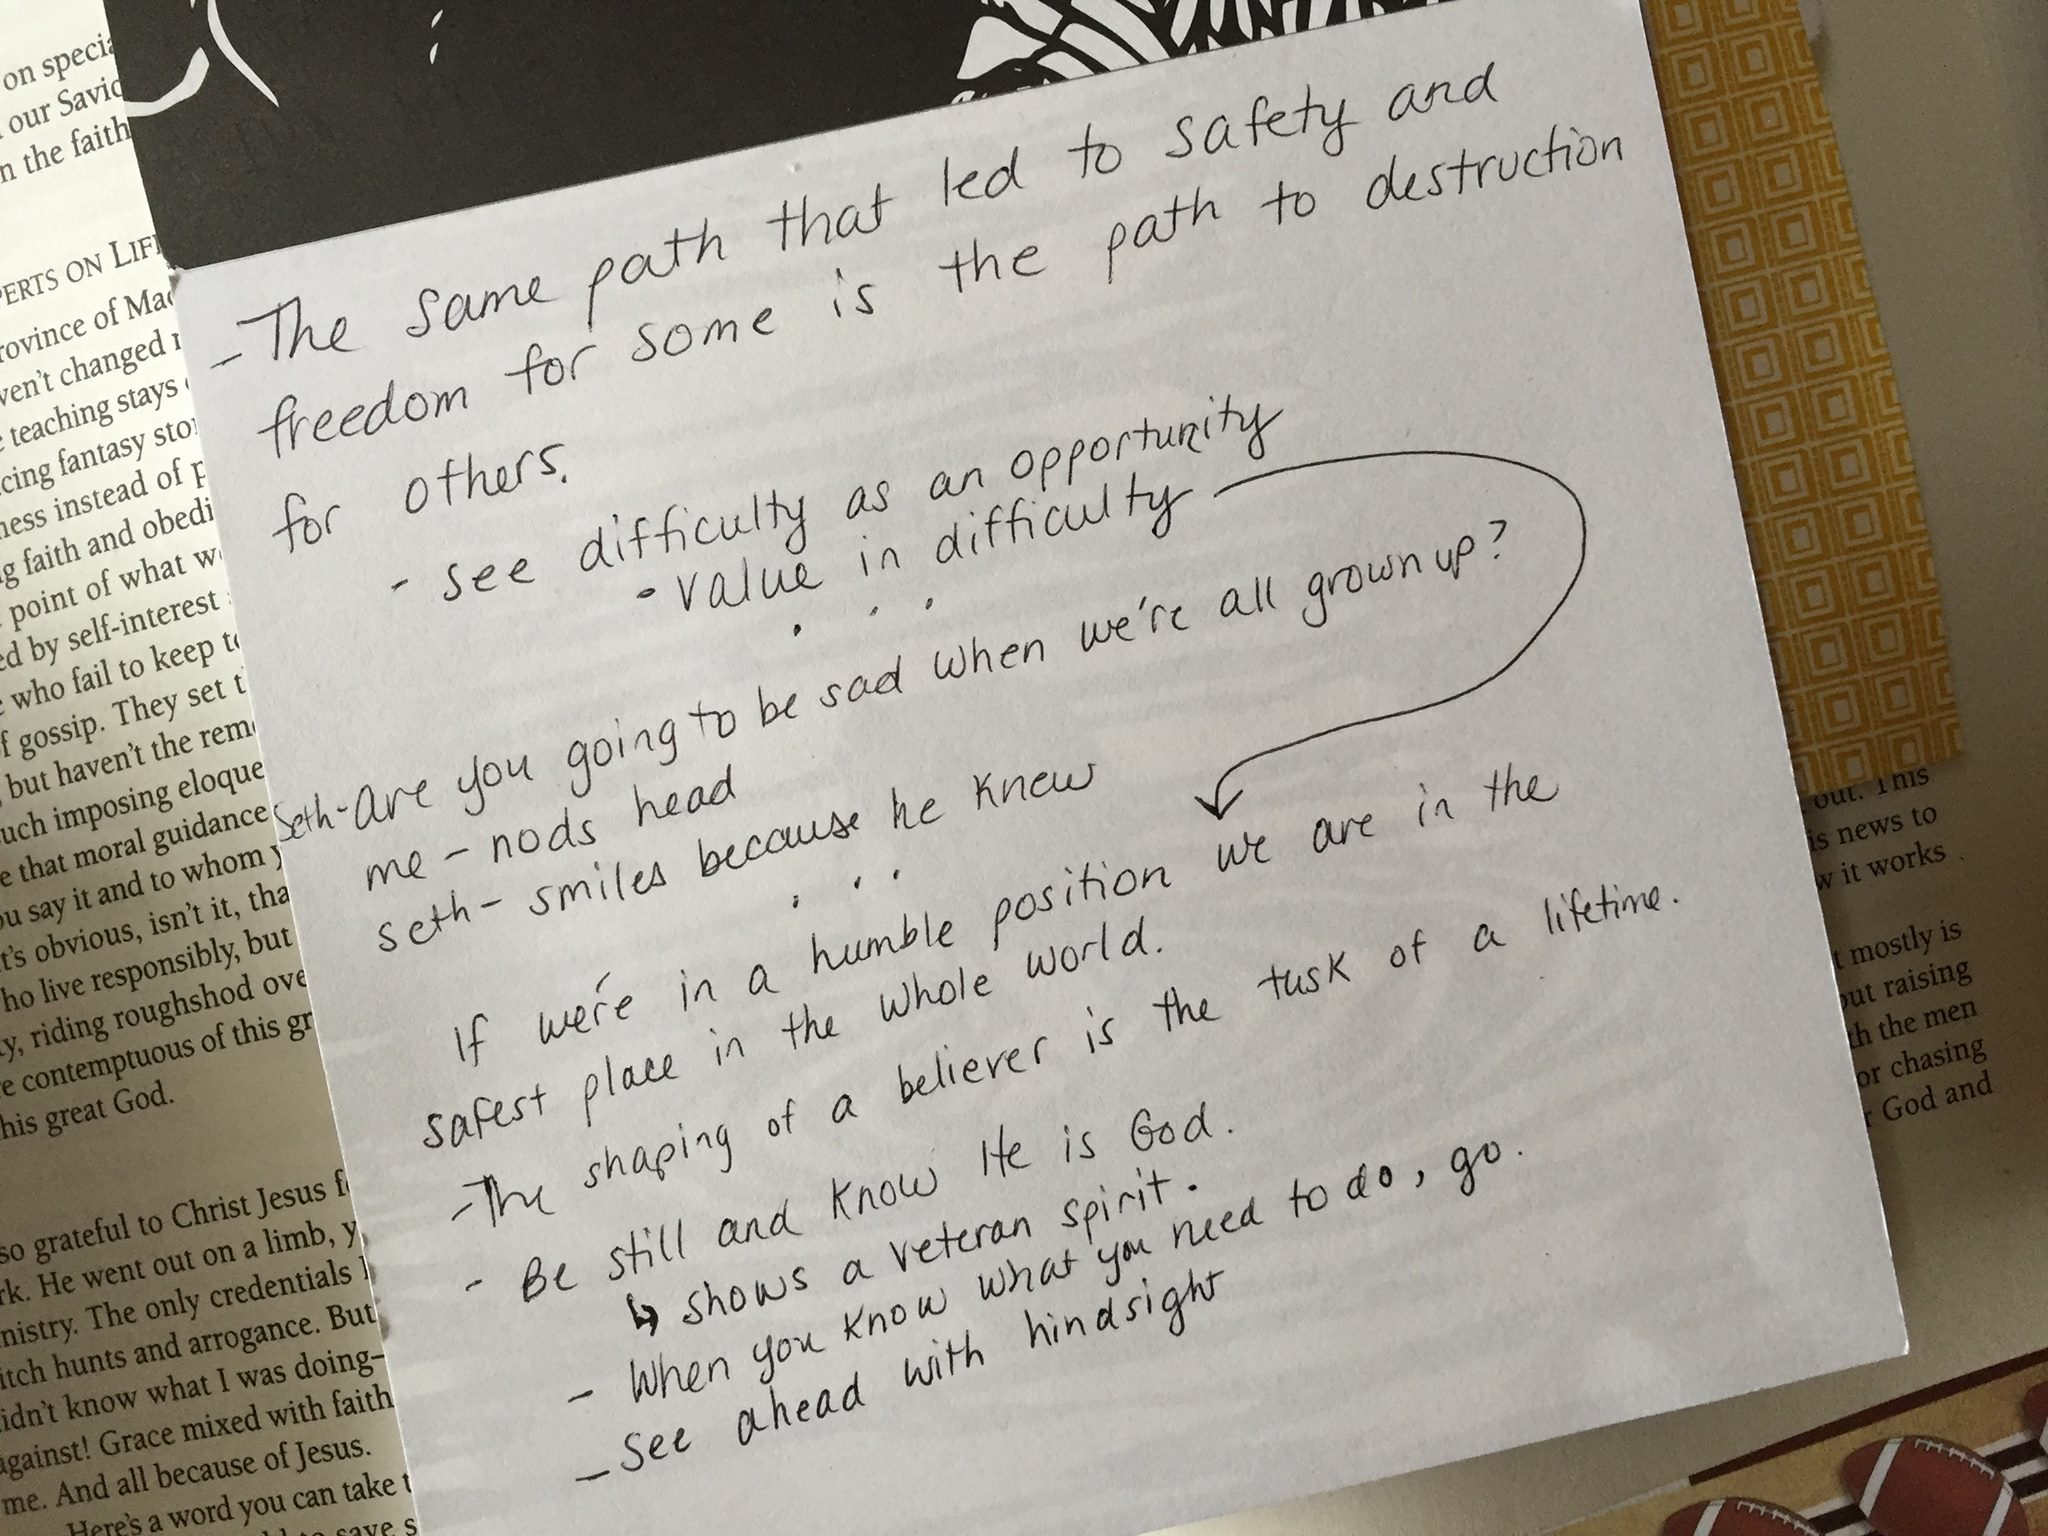 on specia
our Savio
n the faith
PERTS ON LIF
rovince of Mac
ven't changed r
e teaching stays
cing fantasy stor
ness instead of p
g faith and obedi
point of what we
ed by self-interest
who fail to keep to
f gossip. They set t
but haven't the reme
uch imposing eloque
e that moral guidance
ou say it and to whom y
t's obvious, isn't it, tha
ho live responsibly, but
y, riding roughshod ove
e contemptuous of this gr
his great God.
so grateful to Christ Jesus f
rk. He went out on a limb, y
nistry. The only credentials I
itch hunts and arrogance. But
idn't know what I was doing–
against! Grace mixed with faith
me. And all because of Jesus.
Here's a word you can take t
to save s
- The same path that led to safety and
freedom for some is the path to destruction
for others.
- see difficulty as an opportunity
• value in difficulty
. . .
Seth-Are you going to be sad when we're all grown up?
me - nods head
Seth - smiles because he knew
. . .
If we're in a humble position we are in the
safest place in the whole world.
- The shaping of a believer is the tusk of a lifetime.
- Be still and know He is God.
↳ shows a veteran spirit.
- When you know what you need to do, go.
- See ahead with hindsight
out. This
is news to
w it works
t mostly is
out raising
th the men
or chasing
r God and